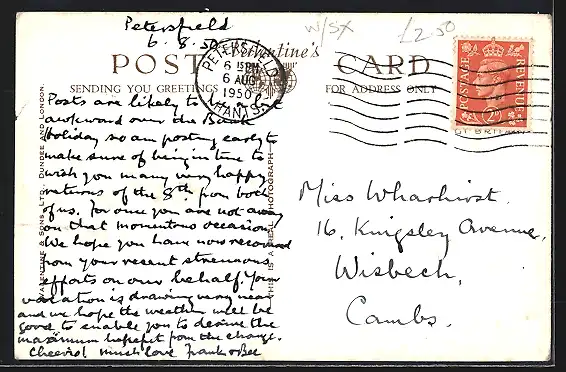 Petersfield
6. 8. 50
W/SX
£2.50
Valentine's
POST CARD
SENDING YOU GREETINGS
FOR ADDRESS ONLY
PETERSFIELD
6 15 PM
6 AUG
1950
HANTS
POSTAGE
REVENUE
2D
Posts are likely to be a bit
awkward over the Bank
Holiday so am posting early to
make sure of being in time to
wish you many very happy
returns of the 8th from both
of us. For once you are not away
on that momentous occasion.
We hope you have now recovered
from your recent strenuous
efforts on our behalf. Your
vacation is drawing very near
and we hope the weather will be
good to enable you to derive the
maximum benefit from the change.
Cheerio! much love Frank & Bee
VALENTINE & SONS, LTD., DUNDEE AND LONDON.
THIS IS A REAL PHOTOGRAPH
Miss Wharhirst.
16, Kingsley Avenue,
Wisbech,
Cambs.